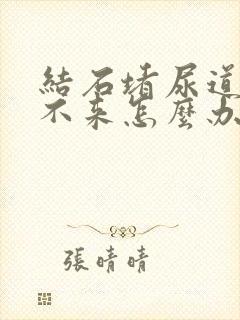 結石堵尿道
不来怎麼办
張晴晴